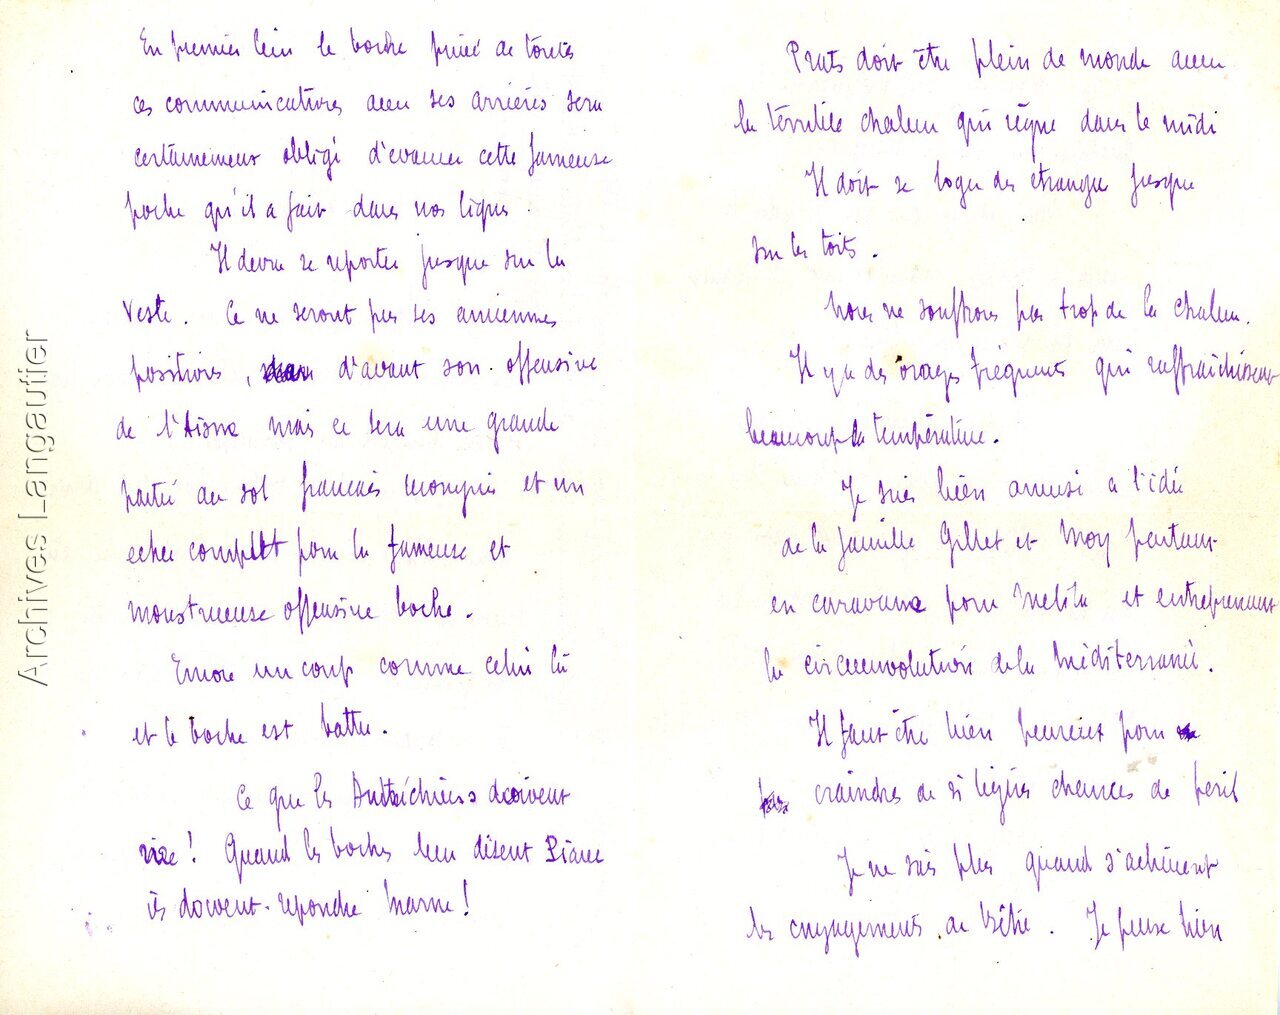 En premier lieu le boche privé de toutes
ces communications avec ses arrières sera
certainement obligé d'évacuer cette fameuse
poche qu'il a fait dans nos lignes.
Il devra se reporter jusque sur la
Vesle. Ce ne seront pas ses anciennes
positions, d'avant son offensive
de l'Aisne mais ce sera une grande
partie du sol français reconquis et un
echec complet pour la fameuse et
monstrueuse offensive boche.
Encore un coup comme celui là
et le boche est battu.
Ce que les Autrichiens doivent
rire! Quand les boches leur disent Piave
ils doivent repondre Marne!
Prats doit être plein de monde avec
la terrible chaleur qui règne dans le midi
Il doit se loger des étrangers jusque
sur les toits.
Nous ne souffrons pas trop de la chaleur.
Il y a des orages fréquents qui raffraichissent
beaucoup la température.
Je suis bien amusé a l'idée
de la famille Gillet et Moy partant
en caravane pour Melilla et entreprenant
la circumvolution de la Méditerranée.
Il faut être bien peureux pour
craindre de si légères chances de péril
Je ne sais plus quand s'achèvent
les engagements de . Je pense bien
Archives Langautier